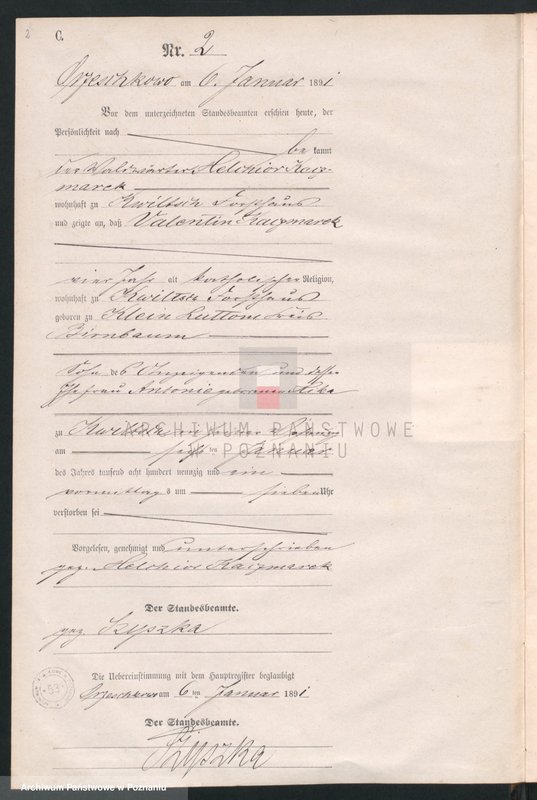 2
C.
Nr. 2
Orzeschkowo am 6. Januar 1891
Vor dem unterzeichneten Standesbeamten erschien heute, der
Persönlichkeit nach
be kannt
der Waldwärter Melchior Kacz-
marek
wohnhaft zu Kwiltsch Forsthaus
und zeigte an, daß Valentin Kaczmarek
vier Jahr alt katholischer Religion,
wohnhaft zu Kwiltsch Forsthaus
geboren zu Klein Luttom Kreis
Birnbaum
Sohn des Anzeigenden und dessen
Ehefrau Antonie geborenen
zu Kwiltsch in seiner Wohnung
am sechsten Januar
des Jahres tausend acht hundert neunzig und ein
vormittags um sieben Uhr
verstorben sei
Vorgelesen, genehmigt und unterschrieben
gez. Melchior Kaczmarek
Der Standesbeamte.
gez. Szyszka
Die Uebereinstimmung mit dem Hauptregister beglaubigt
Orzeschkowo am 6 ten Januar 1891
Der Standesbeamte.
Szyszka
ARCHIWUM PAŃSTWOWE
W POZNANIU
Archiwum Państwowe w Poznaniu